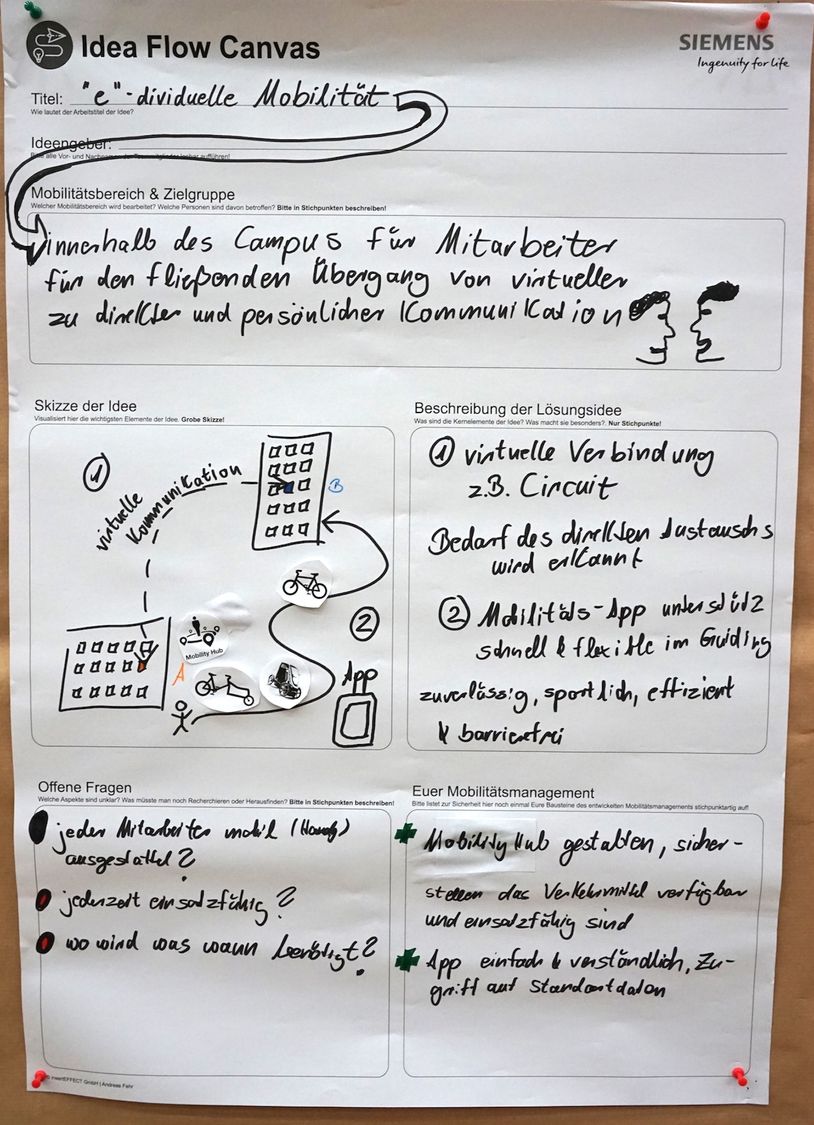 Idea Flow Canvas
SIEMENS
Ingenuity for life
Titel: "e"-dividuelle Mobilität
Wie lautet der Arbeitstitel der Idee?
Ideengeber:
Mobilitätsbereich & Zielgruppe
Welcher Mobilitätsbereich wird bearbeitet? Welche Personen sind davon betroffen? Bitte in Stichpunkten beschreiben!
innerhalb des Campus für Mitarbeiter
für den fließenden Übergang von virtueller
zu direkter und persönlicher Kommunikation
Skizze der Idee
Visualisiert hier die wichtigsten Elemente der Idee. Grobe Skizze!
1
virtuelle
Kommunikation
B
2
Mobility Hub
A
App
Beschreibung der Lösungsidee
Was sind die Kernelemente der Idee? Was macht sie besonders?. Nur Stichpunkte!
1 virtuelle Verbindung
z.B. Circuit
Bedarf des direkten Austauschs
wird erkannt
2 Mobilitäts-App unterstütz
schnell & flexible im Guiding
zuverlässig, sportlich, effizient
& barrierefrei
Offene Fragen
Welche Aspekte sind unklar? Was müsste man noch Recherchieren oder Herausfinden? Bitte in Stichpunkten beschreiben!
jeder Mitarbeiter mobil (Handy)
ausgestattet?
jederzeit einsatzfähig?
wo wird was wann benötigt?
Euer Mobilitätsmanagement
Bitte listet zur Sicherheit hier noch einmal Eure Bausteine des entwickelten Mobilitätsmanagements stichpunktartig auf!
Mobility Hub gestalten, sicher-
stellen das Verkehrsmittel verfügbar
und einsatzfähig sind
App einfach & verständlich, Zu-
griff auf Standortdaten
GmbH | Andreas Fehr